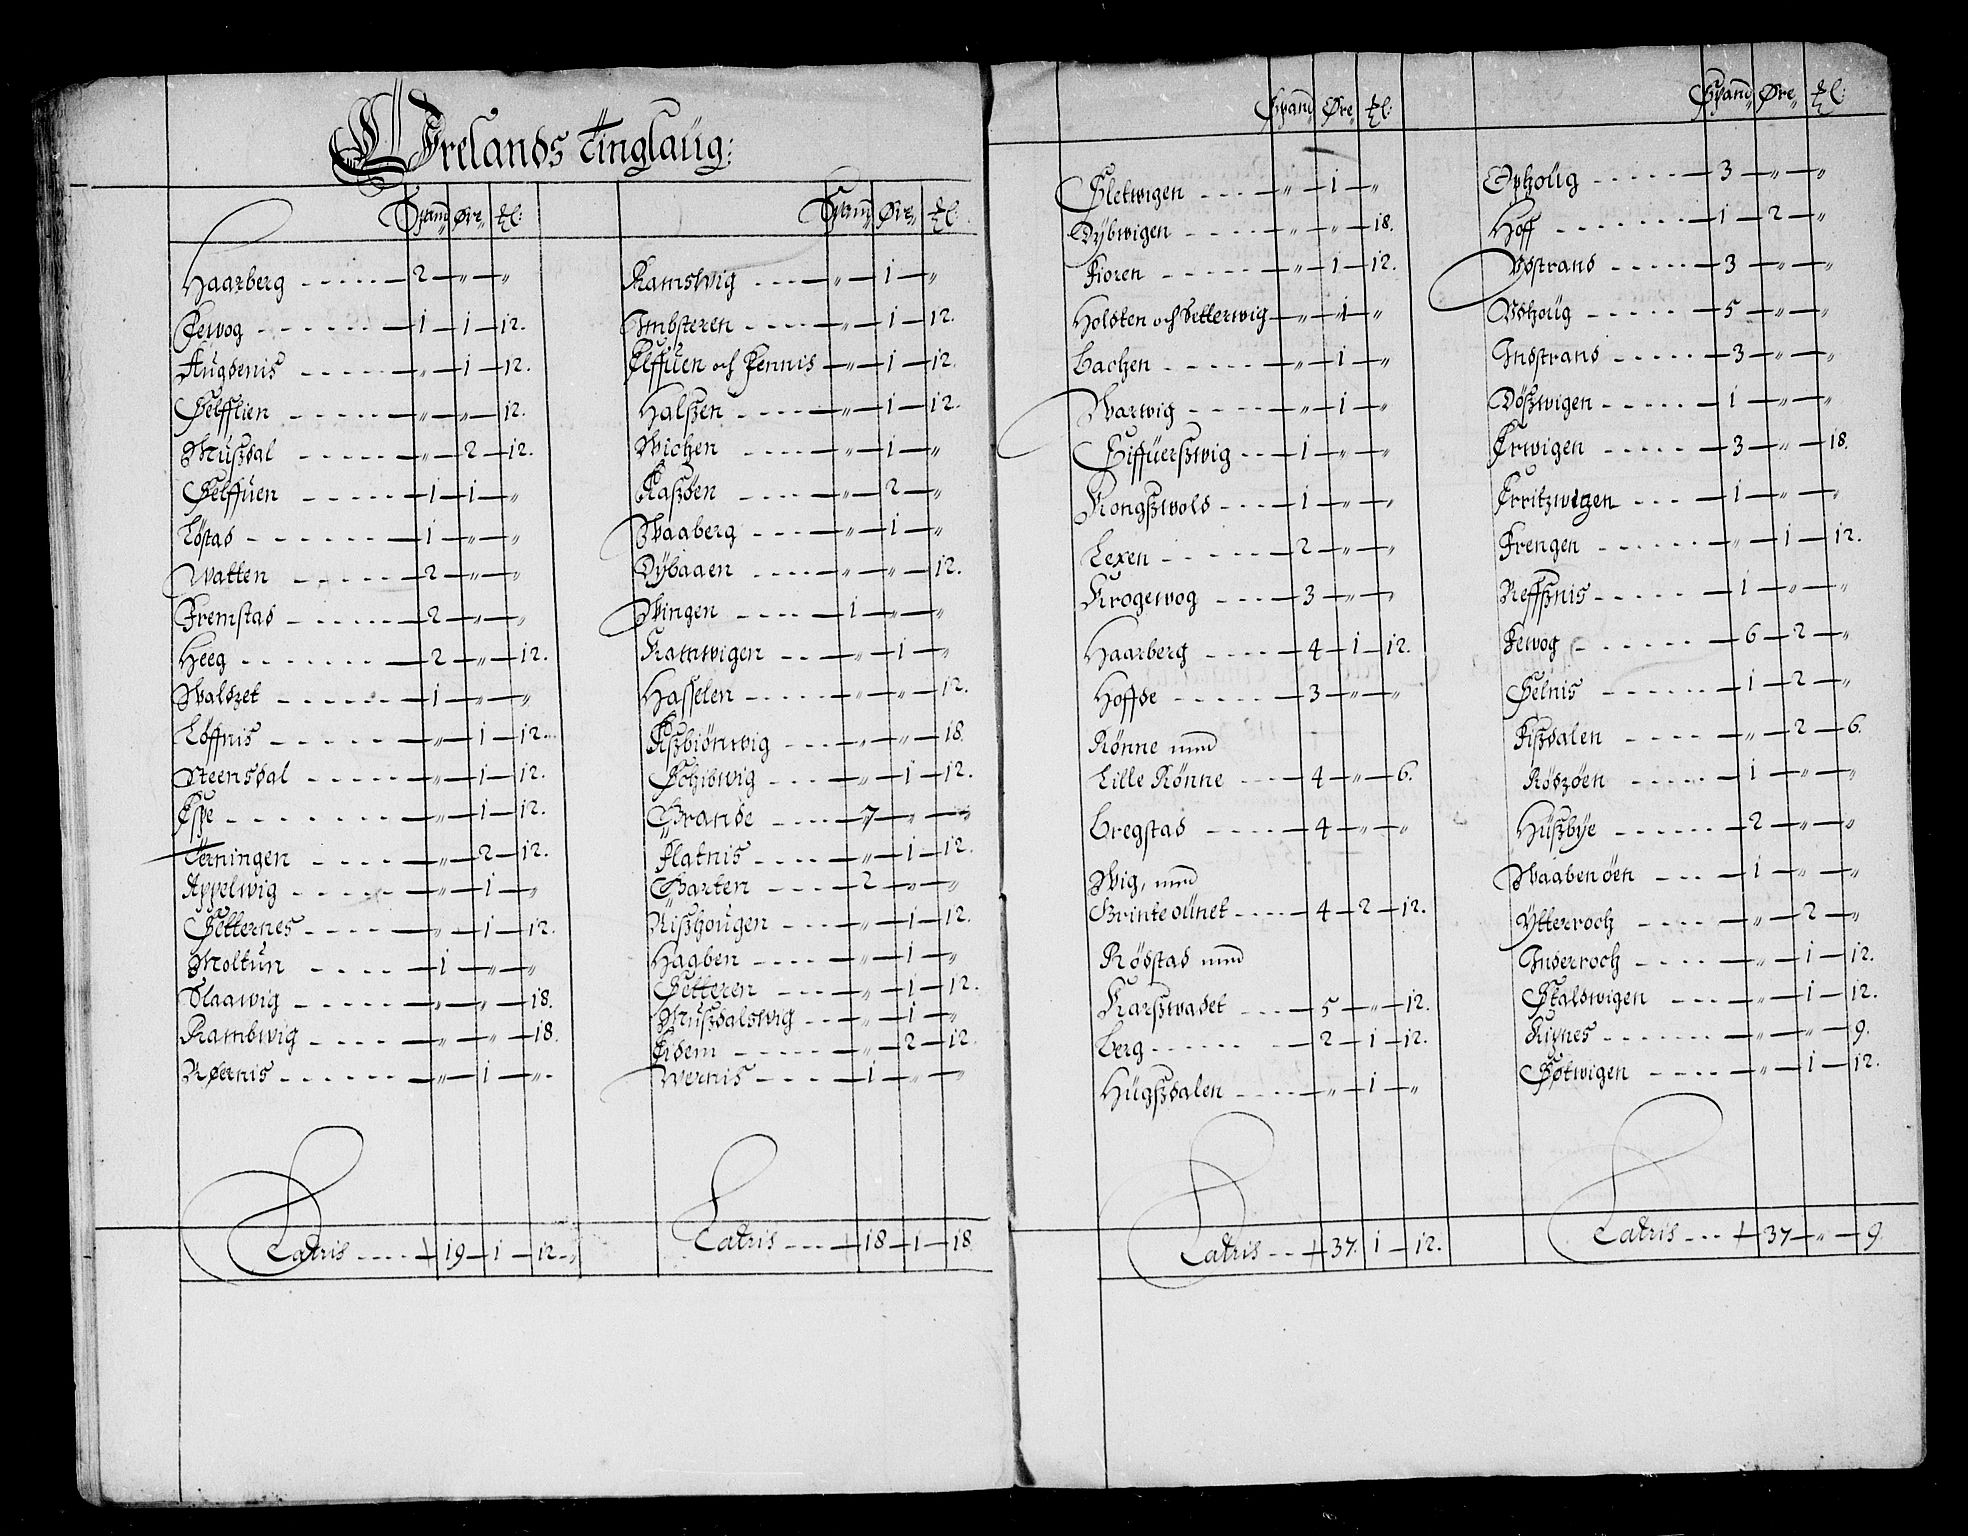 Ørelands Tinglaüg:
Spand Øre
Haarberg ----- 2 — „ — „
Fewog ----- 1 — 1 — 12.
Augdenis ----- „ — 1 — 12.
Selfflien ----- „ — „ — 12.
Müszdal ----- „ — 2 — 12.
Selffüen ----- 1 — 1 — „
Löstad ----- 1 — „ — „
Watten ----- 2 — „ — „
Fremstad ----- 2 — „ — „
Heeg ----- 2 — „ — 12.
Waldzet ----- 1 — „ — „
Löffnis ----- „ — 1 — 12.
Steensdal ----- „ — 1 — 12.
----- „ — 1 — 12.
Terningen ----- „ — 2 — 12.
Appelwig ----- „ — 1 — „
Setternes ----- „ — 1 — 12.
Moltun ----- 1 — „ — „
Slaawig ----- „ — „ — 18.
Rambwig ----- „ — „ — 18.
Røernis ----- „ — 1 — „
Latris ---- 19 — 1 — 12
Spand Øre
Ramswig ----- „ — 1 — „
Imbsteren ----- „ — 1 — 12.
Elffüen och Fennis — „ — 1 — 12.
Halszen ----- „ — 1 — 12.
Wichen ----- „ — 1 — „
Raszöen ----- „ — 2 — „
Waaberg ----- „ — 1 — „
Dÿbaaen ----- „ — „ — 12.
Wingen ----- 1 — „ — „
Kamwigen ----- „ — 1 — „
Hasselen ----- „ — „ — 12.
Eszbiönwig ----- „ — „ — 18.
----- „ — 1 — 12.
Grande ----- 7 — „ — „
Flatnis ----- „ — 1 — 12.
Garten ----- 2 — „ — „
Riszhougen ----- „ — 1 — 12.
Hagben ----- „ — 1 — „
Setteren ----- „ — 1 — 12.
Müszdalswig ----- „ — 1 — „
Eidem ----- „ — 2 — 12.
Wernis ----- 1 — „ — „
Latris ---- 18 — 1 — 18
Spand Øre
Sletwigen ----- „ — 1 — „
Dÿbwigen ----- „ — „ — 18.
Fioren ----- „ — 1 — 12.
Holden och Setterwig — „ — 1 — „
Bachen ----- „ — 1 — „
Warwig ----- „ — 1 — „
Siffüerszwig --- 1 — „ — „
Kongszwold ---- 1 — „ — „
Lexen ----- 2 — „ — „
Krogewog ---- 3 — „ — „
Haarberg ----- 4 — 1 — 12.
Hoffde ----- 3 — „ — „
Rönne med
Lille Rönne ---- 4 — „ — 6.
Bregstad ----- 4 — „ — „
Wig, med
Brinteoünet ---- 4 — 2 — 12.
Rödstad med
Karszwadet ---- 5 — „ — 12.
Berg ----- 2 — 1 — 12.
Hügszdalen ----- „ — 1 — „
Latris --- 37. 1 — 12.
Spand Øre
Ophoüg ----- 3 — „ — „
Hoff ----- 1 — 2 — „
Wdstrand ----- 3 — „ — „
Wdhoüg ----- 5 — „ — „
Indstrand ----- 3 — „ — „
Döszwigen ----- 1 — „ — „
Erwigen ----- 3 — „ — 18.
Erritzwigen ---- 1 — „ — „
Frengen ----- „ — 1 — 12.
Reffsznis ----- 1 — „ — „
Fewog ----- 6 — 2 — „
Selnis ----- 1 — 2 — „
Fiszdalen ----- „ — 2 — 6.
Rödzöen ----- 1 — „ — „
Hüszbÿe ----- 2 — „ — „
Waabenöen ---- 1 — „ — „
Ytterroch ----- „ — 2 — „
Inderroch ----- „ — 1 — 12.
Skaldwigen ---- „ — 1 — 12.
----- „ — „ — 9.
Søtwigen ----- „ — 1 — 12.
Latris --- 37 — „ — 9.